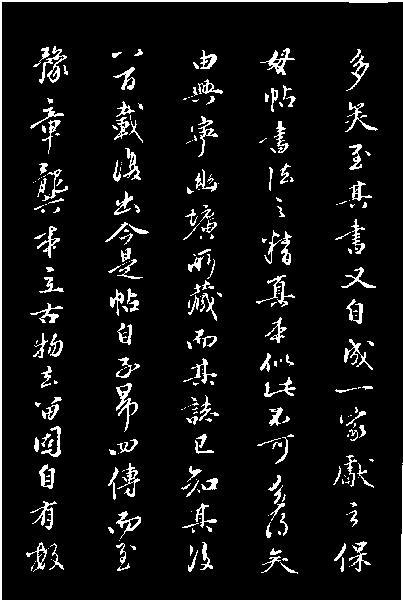 多矣至其書又自成一家獻之保
母帖書法之精真本似此不可多得矣
由興寧幽壙所藏而其誌已知其後
八百載後出今是帖自子昂四傳而至
豫章龔本立古物去留固自有數